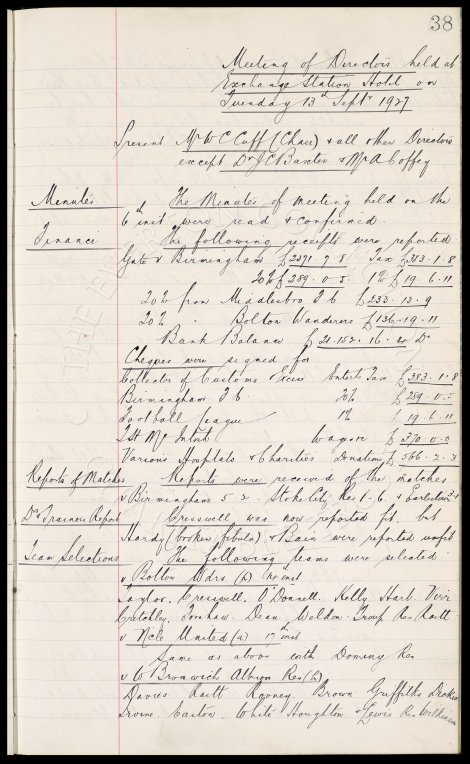 38
Meeting of Directors held at
Exchange Station Hotel on
Tuesday 13th Septr 1927
Present Mr W C Cuff (Chair) & all other Directors
except Dr J C Baxter & Mr A Coffey
Minutes The Minutes of meeting held on the
6th inst were read & confirmed.
Finance The following receipts were reported
Gate v Birmingham £2371.7.8 Tax £383.1.8
20% £289.0.5 1% £19.6.11
20% from Middlesbro F C £233.13.9
20% " Bolton Wanderers £136.19.11
Bank Balance £21.152.16.4 Dr
Cheques were signed for
Collector of Customs Excise Entertt Tax £383.1.8
Birmingham F C 20% £289.0.5
Football League 1% £19.6.11
T H McIntosh Wages £370.0.0
Various Hospitals & Charities Donations £566.2.3
Reports of Matches Reports were received of the matches
v Birmingham 5-2. Stoke City Res 1-6. & Earlestown
Dr & Trainers Report Cresswell was now reported fit, but
Hardy (broken fibula) & Bain were reported unfit
Team Selections The following teams were selected
v Bolton Wdrs (h) inst
Taylor. Cresswell. O'Donnell. Kelly. Hart. Virr
Critchley. Forshaw. Dean. Weldon. Troup Res. Raitt
v Ncle United (a) 17th inst
Same as above with Domeny Res
v W Bromwich Albion Res (h)
Davies Raitt Rooney. Brown Griffiths
Irvine. Easton. White Houghton & Lewis Res Wilkinson